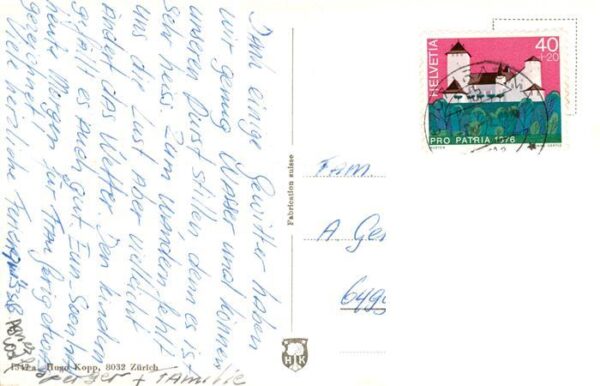 Dank einige Gewitter haben
wir genug Wasser und können
unseren Durst stillen denn es ist
sehr heiss. Zum Wandern fehlt
uns die Lust aber vielleicht
ändert das Wetter. Den Kinder
gefällt es auch gut. Eun-Soon hat
heute Morgen für Frau
gezeichnet.
Viele herzliche Feriengrüsse
+ Familie
Fabrication suisse
1347a Hugo Kopp, 8032 Zürich
HK
HELVETIA
40
+20
PRO PATRIA 1976
FAM.
A Ge